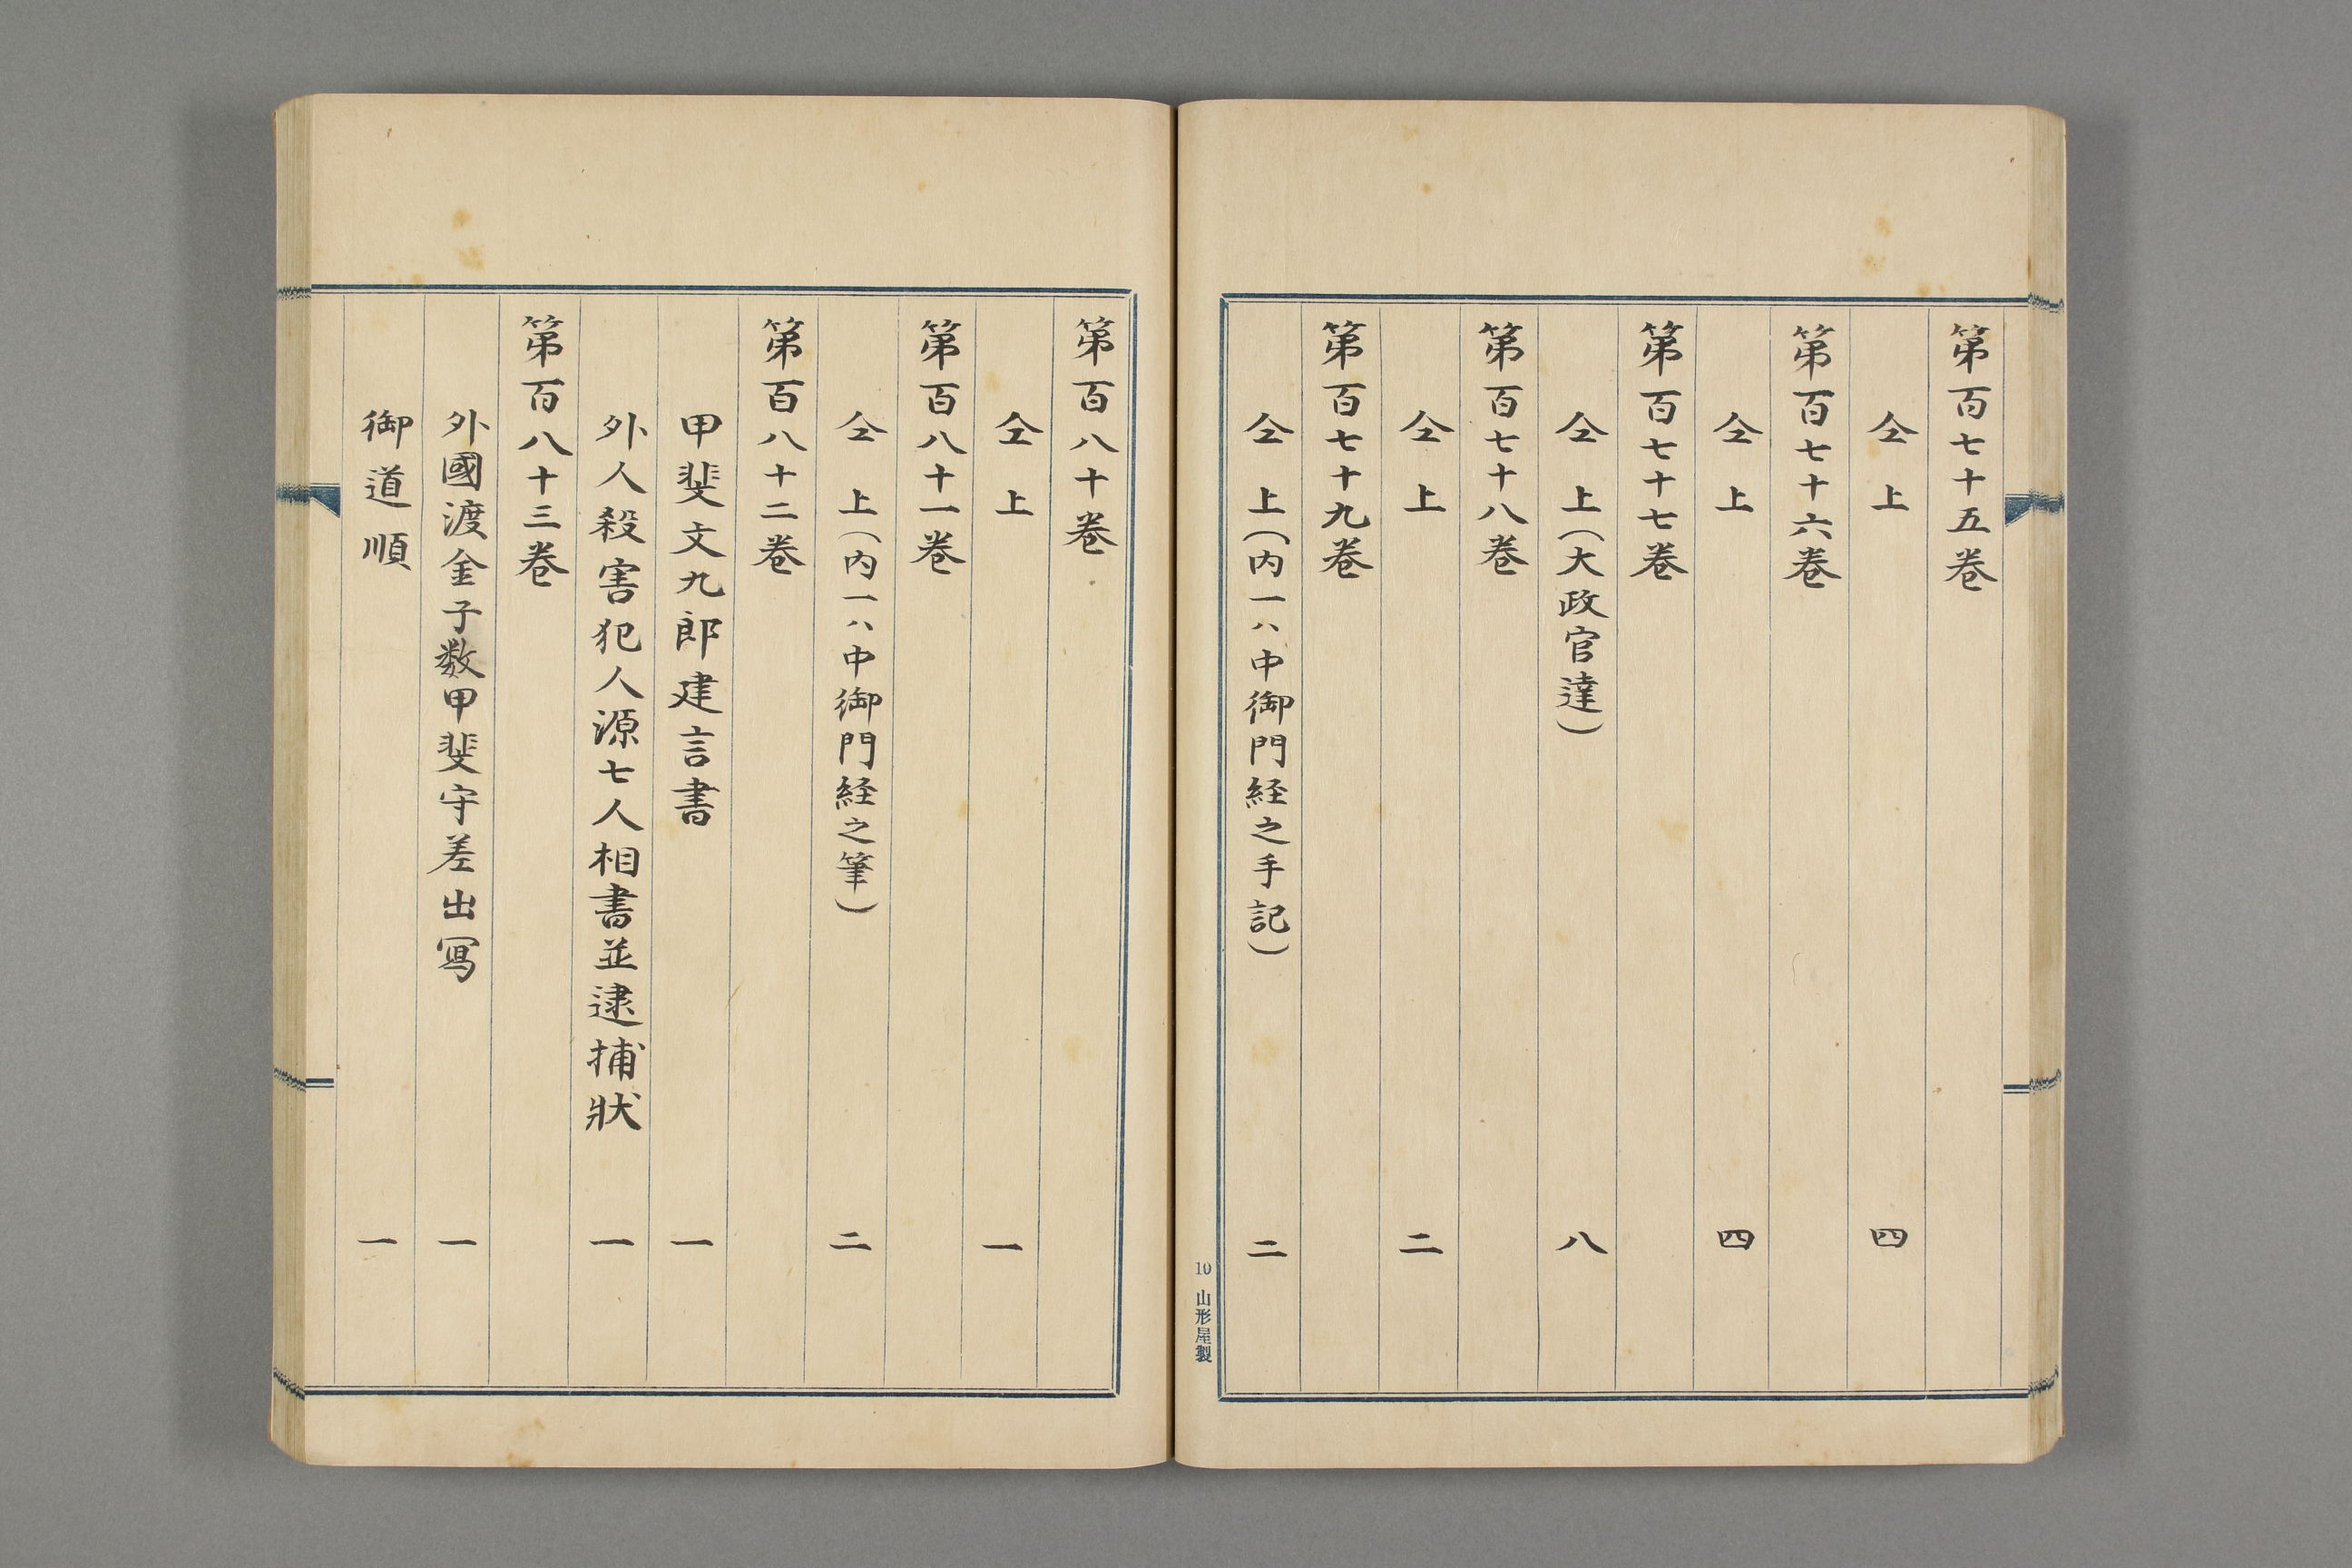 第百七十五巻
仝上 四
第百七十六巻
仝上 四
第百七十七巻
仝上（大政官達） 八
第百七十八巻
仝上 二
第百七十九巻
仝上（内一ハ中御門経之手記） 二
10 山形屋製
第百八十巻
仝上 一
第百八十一巻
仝上（内一ハ中御門経之筆） 二
第百八十二巻
甲斐文九郎建言書 一
外人殺害犯人源七人相書並逮捕狀 一
第百八十三巻
外國渡金子数甲斐守差出冩 一
御道順 一